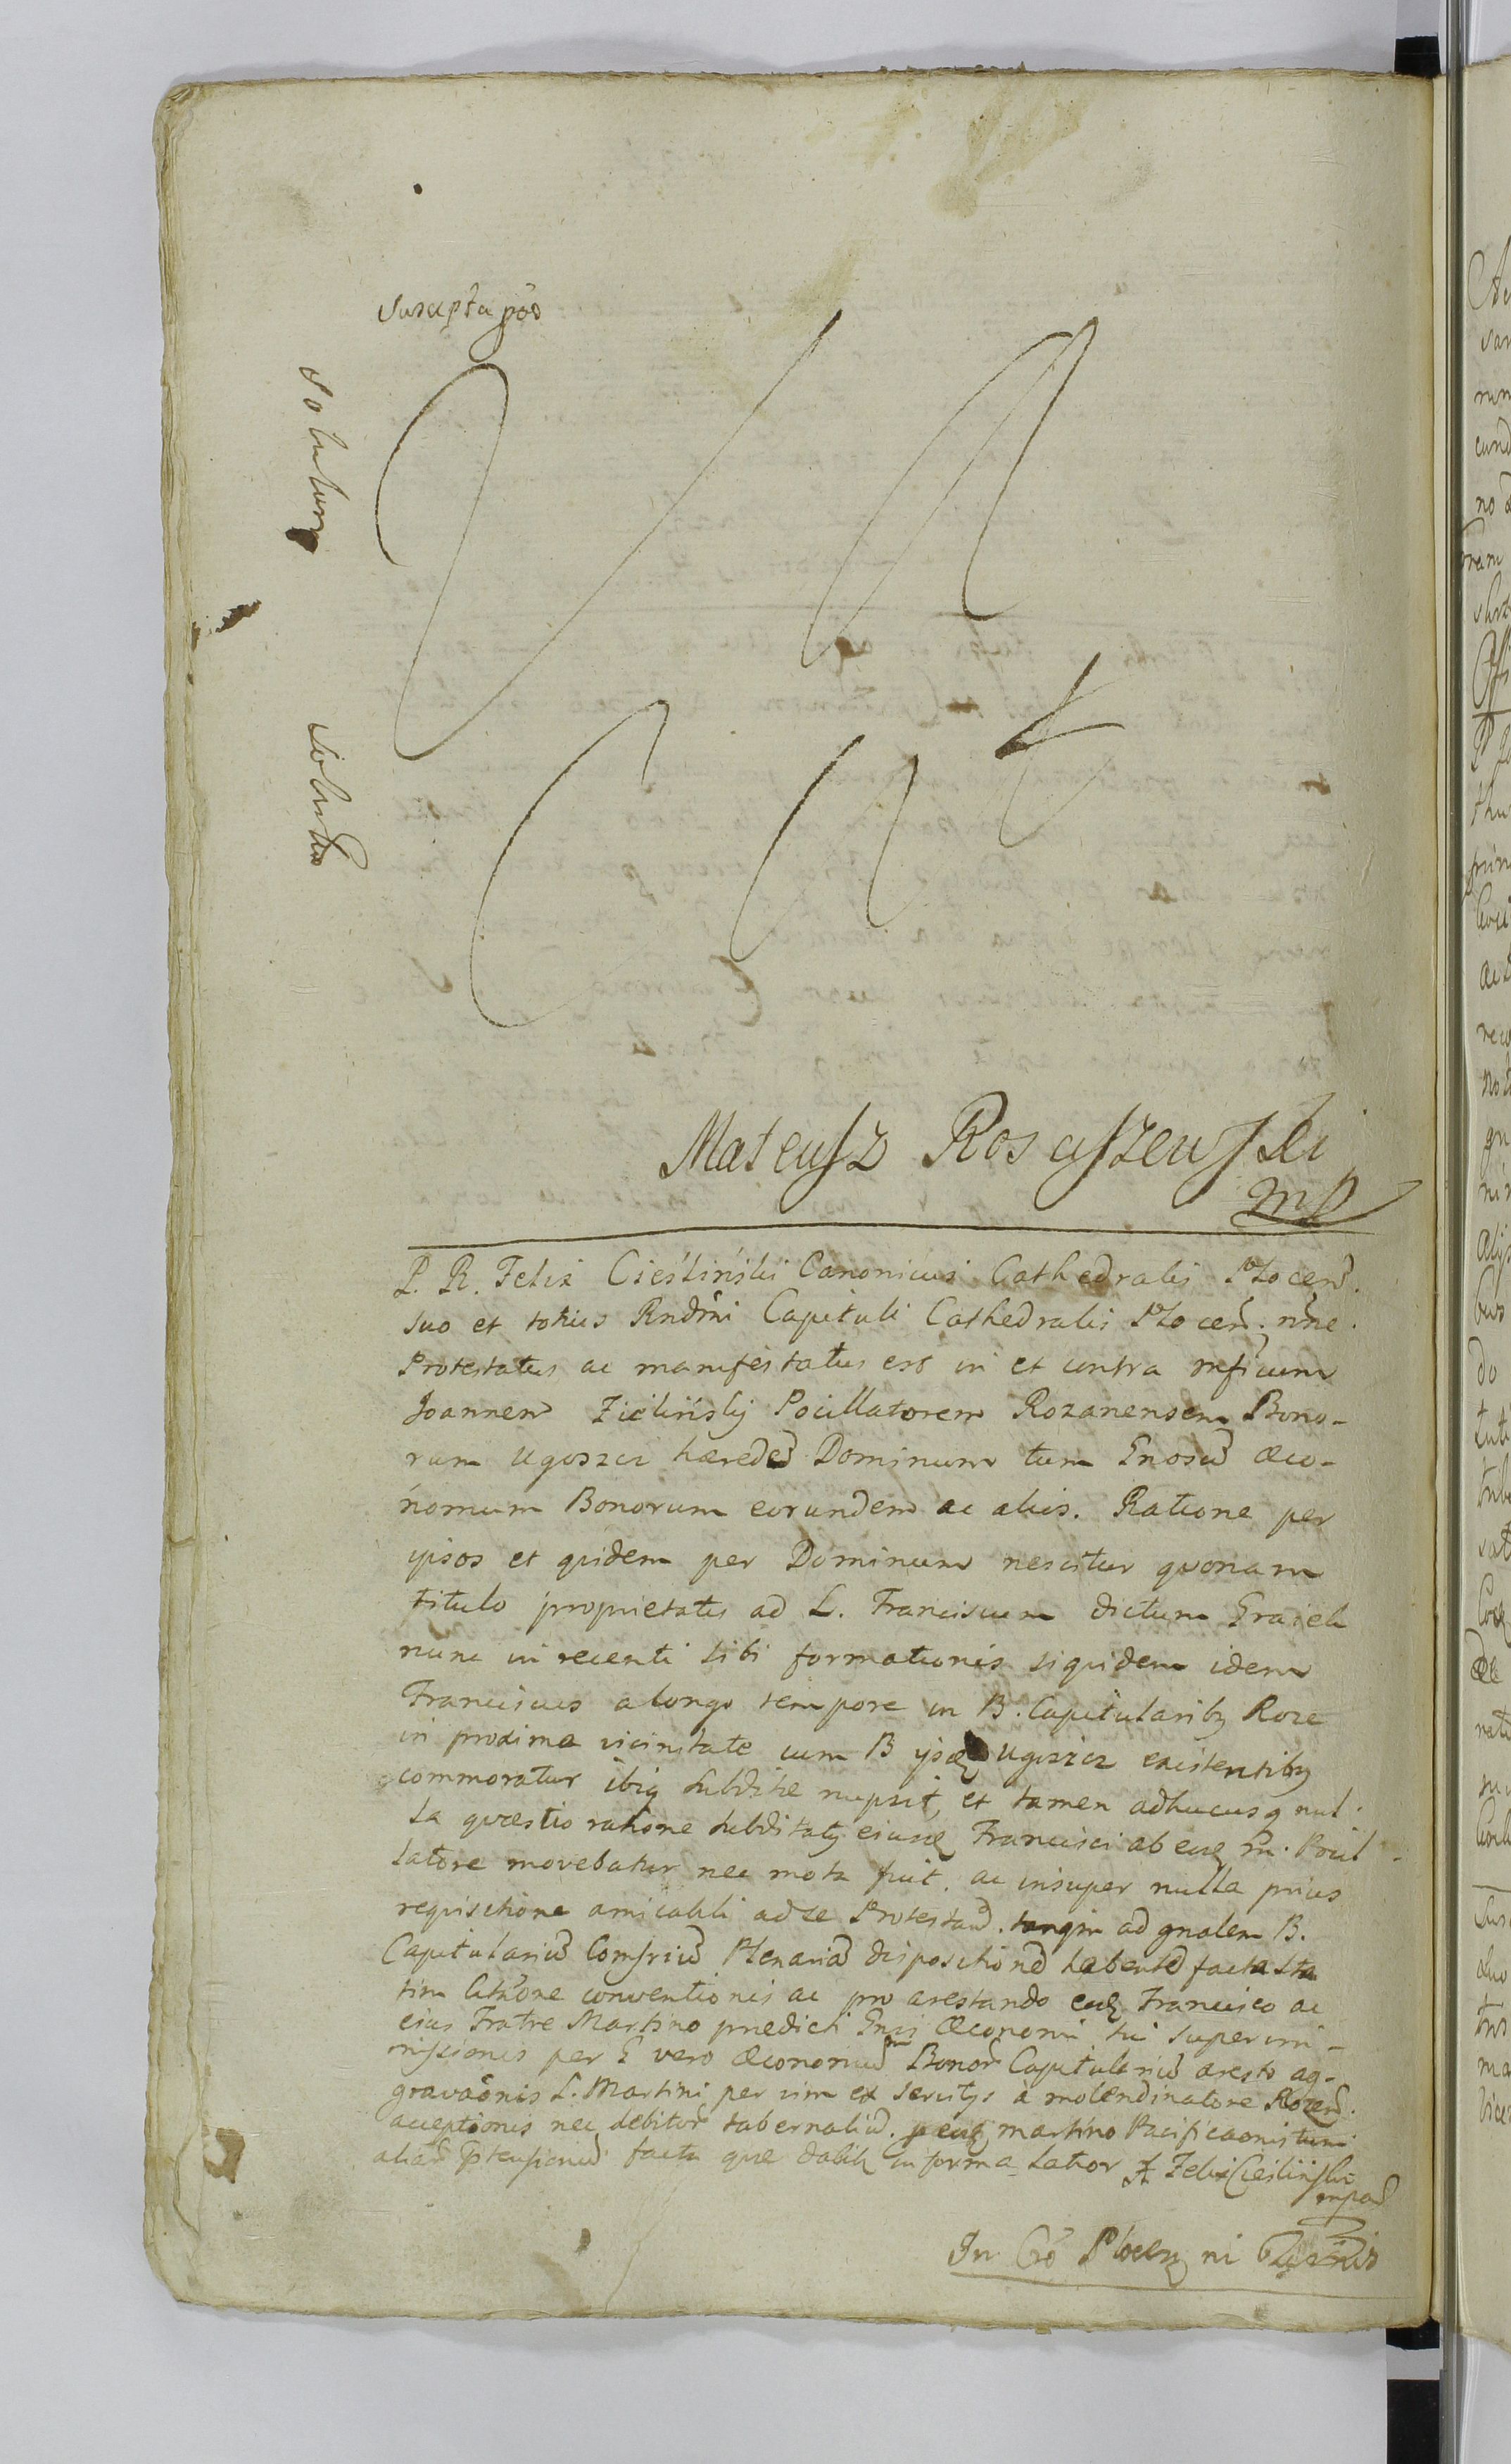 Suscepta
Solutum
Solutum
Mateusz Rosciszewski
mp
P. R. Felix Cieśliński Canonicus Cathedralis Plocen.
suo et totius Rndmi Capituli Cathedralis Plocen. nne.
Protestatus ac manifestatus est in et contra mficum
Joannem Zieliński Pocillatorem Rozanensem Bono-
rum Ugoszcz hæredem Dominum tum Gnosum œco-
nomum Bonorum eorundem ac aliis. Ratione per
ipsos et quidem per Dominum nescitur quonam
titulo proprietatis ad L. Franciscum dictum
nunc in recenti sibi formationis siquidem idem
Franciscus a longo tempore in B. Capitularibq
in proxima vicinitate cum B Ugoszcz existentibq
commoratur ibiq subditæ nupsit, et tamen adhucusq nul-
la quæstio ratione subditatq eiusq Francisci ab eoq M. Pocil-
latore movebatur nec mota fuit. ac insuper nulla prius
requisitione amicabili ad se Protestan. tanqm ad gnalem B.
Capitularium Comsrium Plenariam dispositionem habentem facta sta
tim conventionis ac pro arestando eoq Francisco ac
eius Fratre Martino prædicti Gnsi Œconomi sui superimi-
missionis per G vero Œconomum Bonor Capitularium aresto ag-
gravaonis L. Martini per vim et a molendinatore Rozen.
acceptionis nec debitor tabernalium. p eoq martino Pacificaonis tum
aliar ptensionum facta que dabitq in forma lator Felix Cieśliński
mpa
In Plocen ni